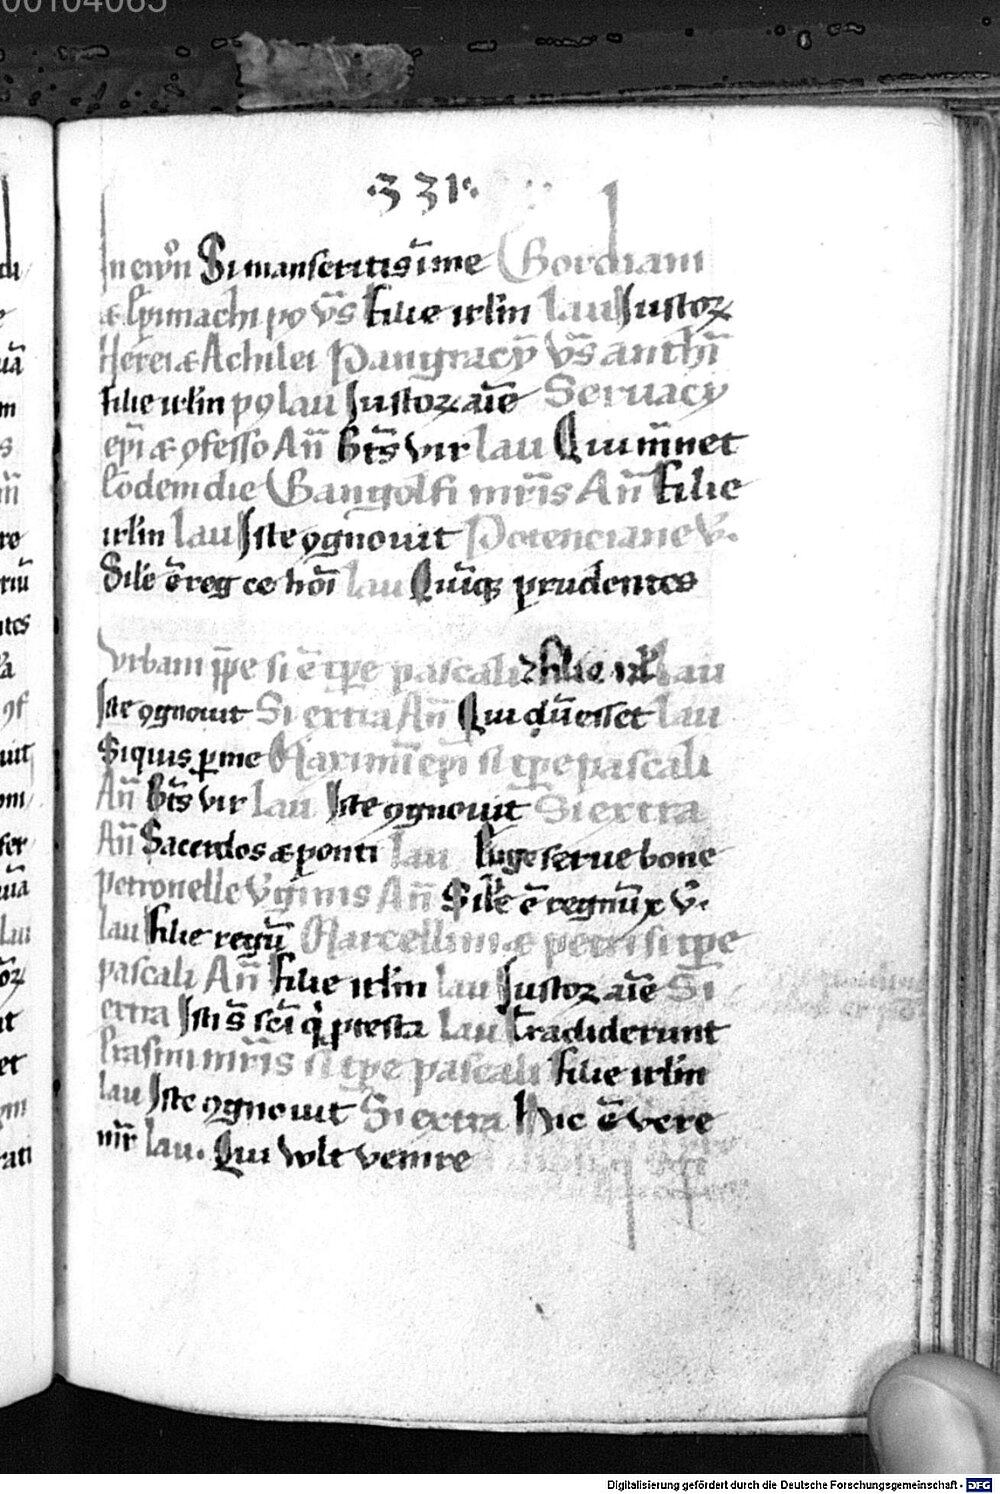 00104065
·331·
In ewn̄ Si manseritis ī me Gordiani
⁊ Epimachi po v̄s Filie irl̄m lau Iustoꝝ
Nerei ⁊ Achilei Pangracȳ v̄s anthī
Filie irl̄m pꝰ lau Iustoꝝ aīe Seruacy
ep̄i ⁊ ꝯfesso An̄ Bt̄s vir lau Qui m̄ net
Eodem die Gangolfi mr̄is An̄ Filie
irl̄m lau Iste ꝯgnouit Potenciane v̄.
Sil̄e ē reg ce hōi lau Quīqꝫ prudentes
Vrbani pp̄e si ē tp̄e pascali Filie irl̄ lau
Iste ꝯgnouit Si extra An̄ Qui dū esset lau
Siquis ꝑ me Maximi ep̄i si tp̄e pascali
An̄ Bt̄s vir lau Iste ꝯgnouit Si extra
An̄ Sacerdos ⁊ ponti lau Euge serue bone
Petronelle v̄ginis An̄ Sil̄e ē regnū x v̄.
lau Filie regū Marcellini ⁊ petri si tp̄e
pascali An̄ Filie irl̄m lau Iustoꝝ aīe Si
extra Isti s̄ sc̄i q̇ ptesta lau Tradiderunt
Erasmi mr̄is si tp̄e pascali Filie irl̄m
lau Iste ꝯgnouit Si extra Hic ē vere
mr̄ lau. Qui wlt venire
Digitalisierung gefördert durch die Deutsche Forschungsgemeinschaft - DFG